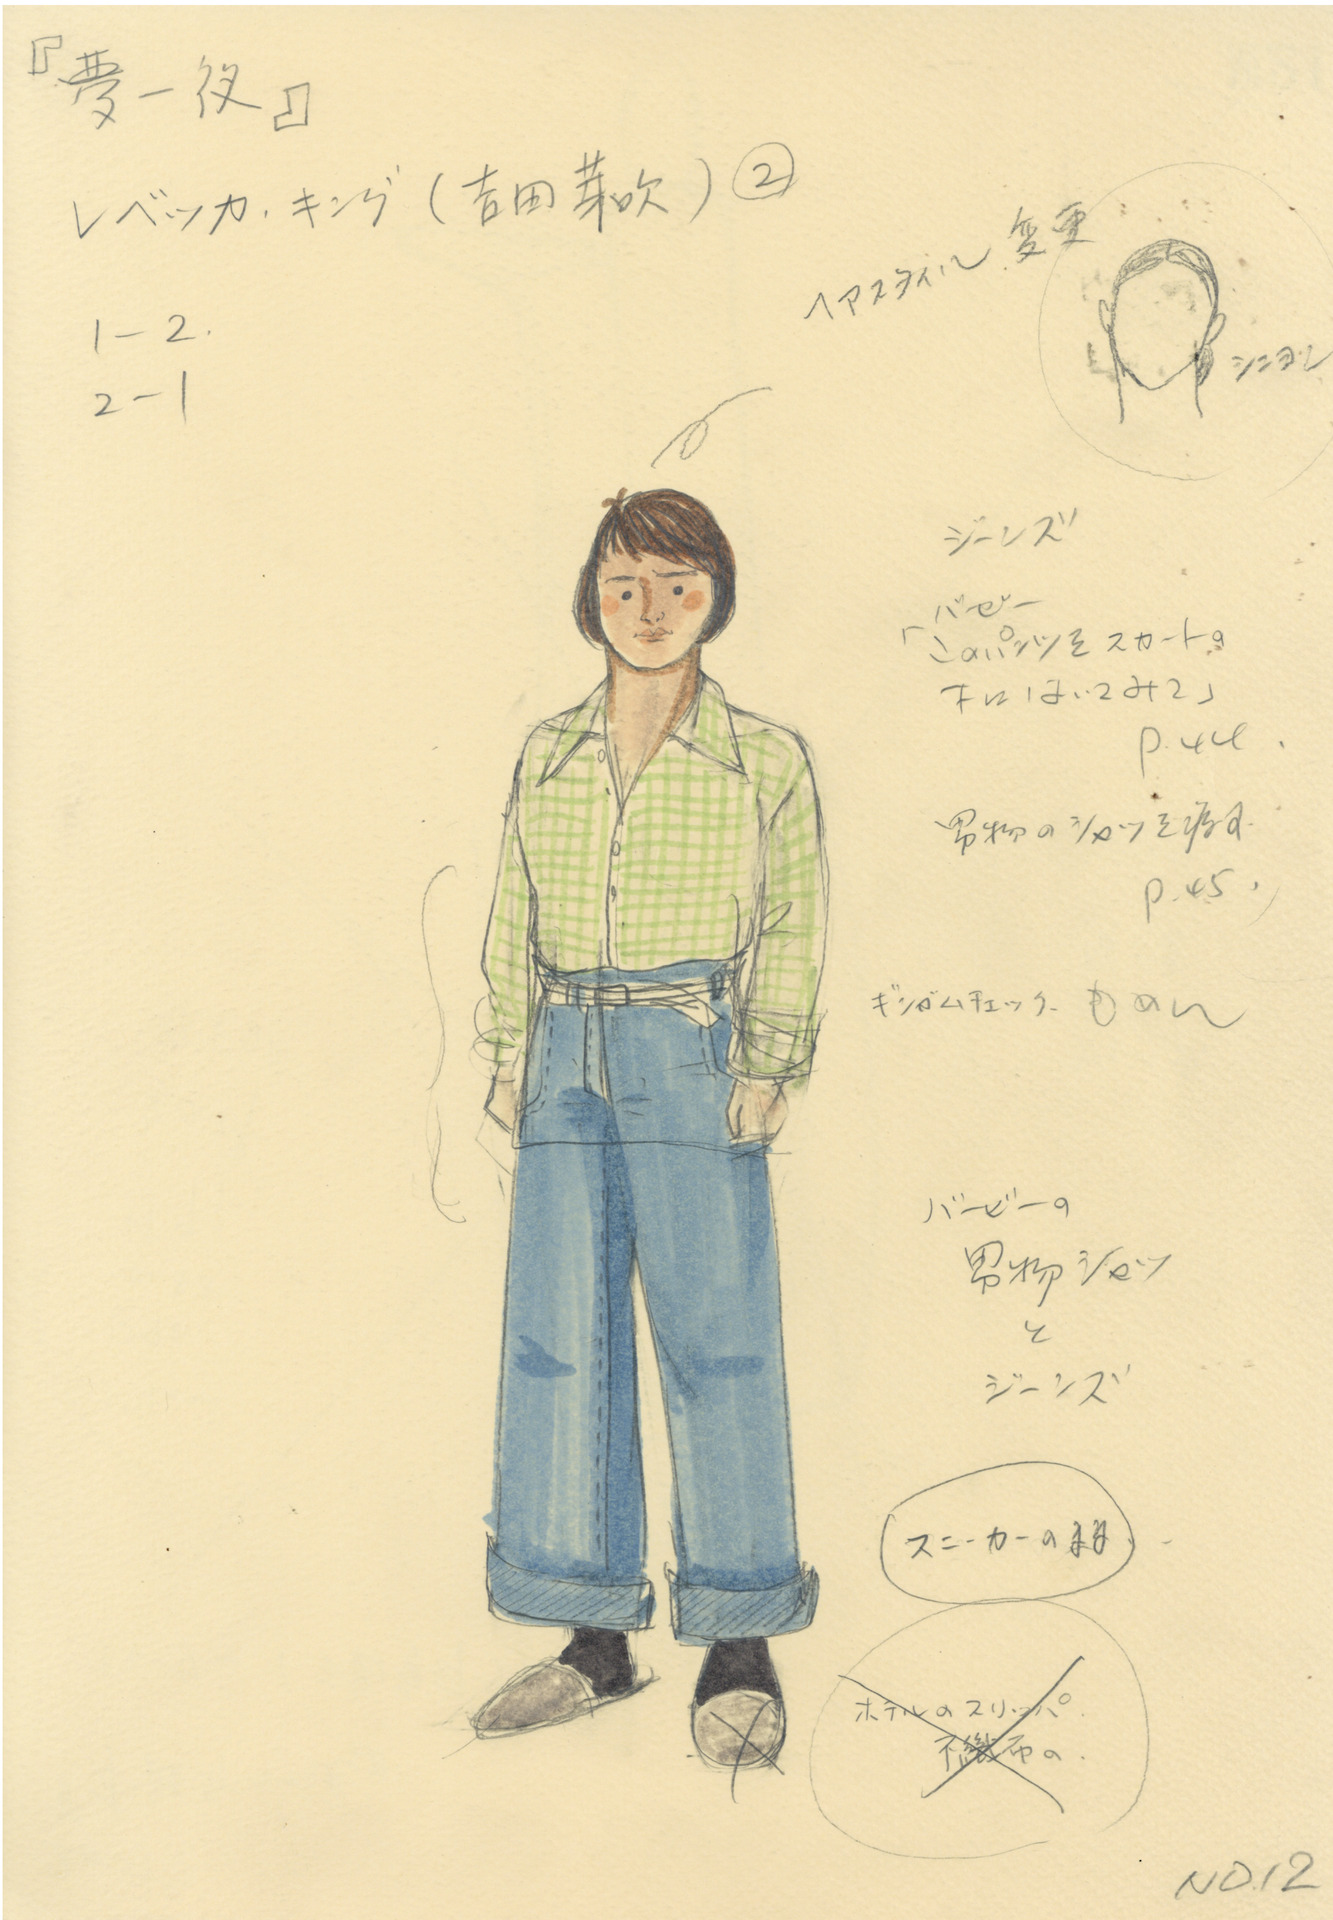 『夢一夜』
レベッカ・キング(吉田芽吹)②
1-2.
2-1
ヘアスタイル 変更
シニヨン
ジーンズ
バービー
「このパンツを スカートの
下に はいてみて」
p.44.
男物のシャツを渡す
p.45.
ギンガムチェック もめん
バービーの
男物シャツ
と
ジーンズ
スニーカーのまま
ホテルのスリッパ.
不織布の.
NO.12